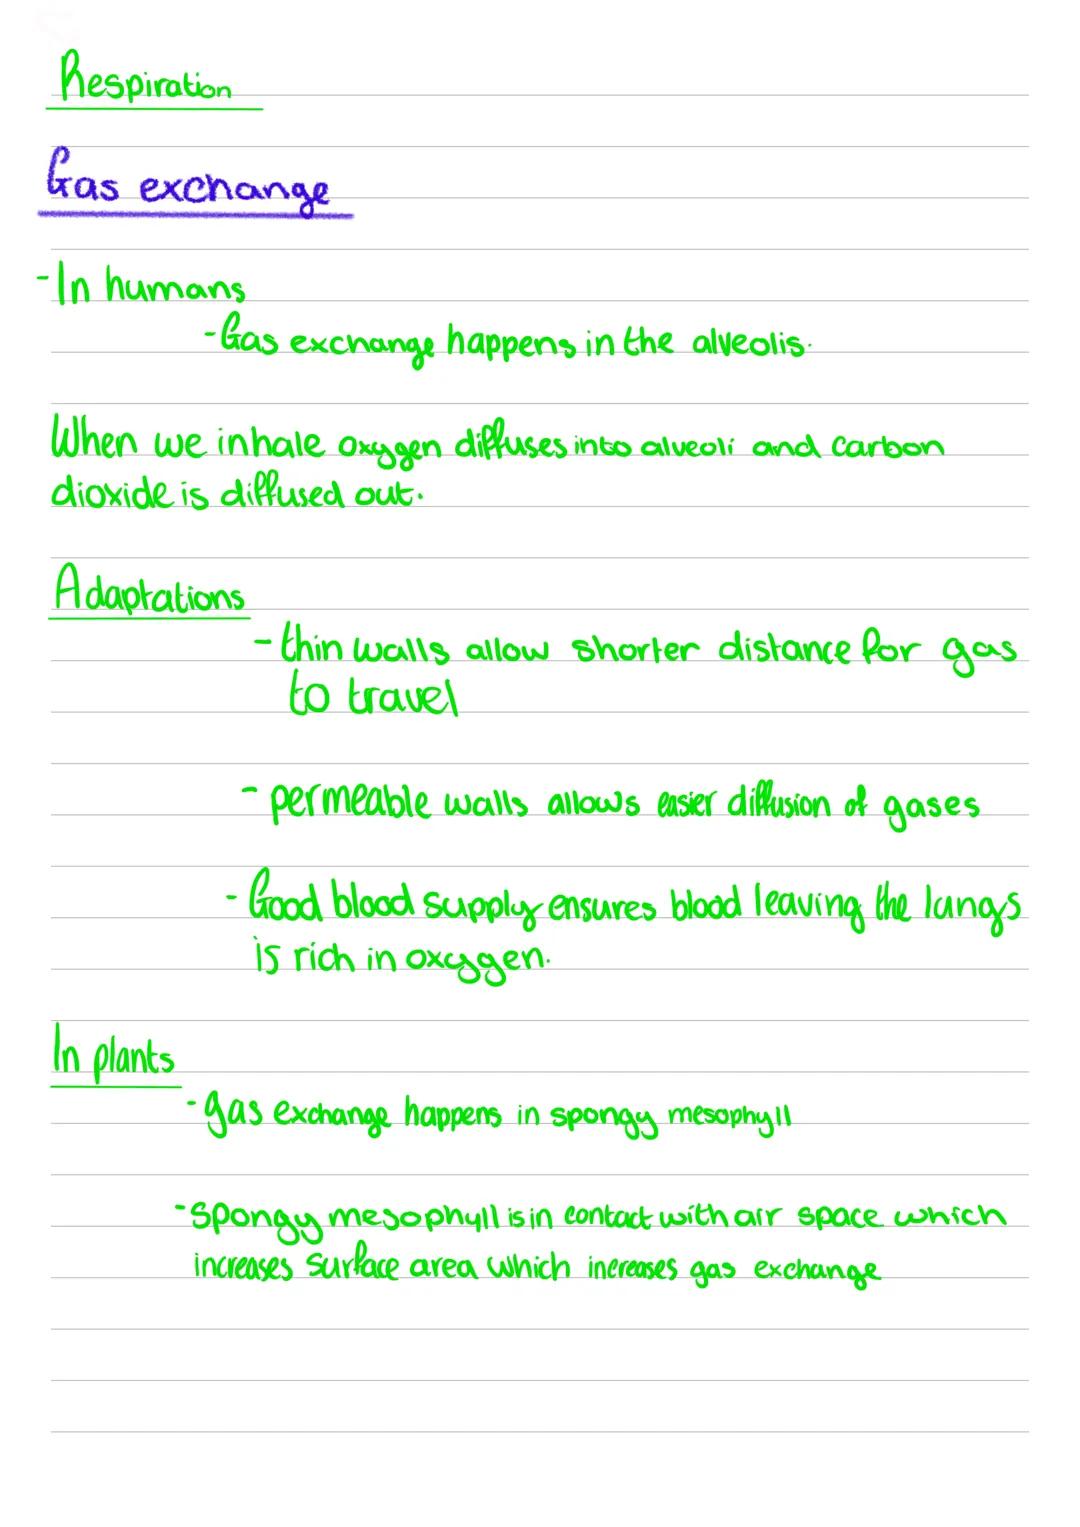 Respiration
Gas exchange
-In humans
-Gas exchange happens in the alveolis.
When we inhale oxygen diffuses into alveoli and carbon
dioxide is diffused out.
Adaptations
-thin walls allow shorter distance for gas
to travel
-permeable walls allows easier diffusion of gases
-Good blood supply ensures blood leaving the lungs
is rich in oxygen.
In plants
-gas exchange happens in spongy mesophyll
-spongy mesophyll is in contact with air space which
increases surface area which increases gas exchange